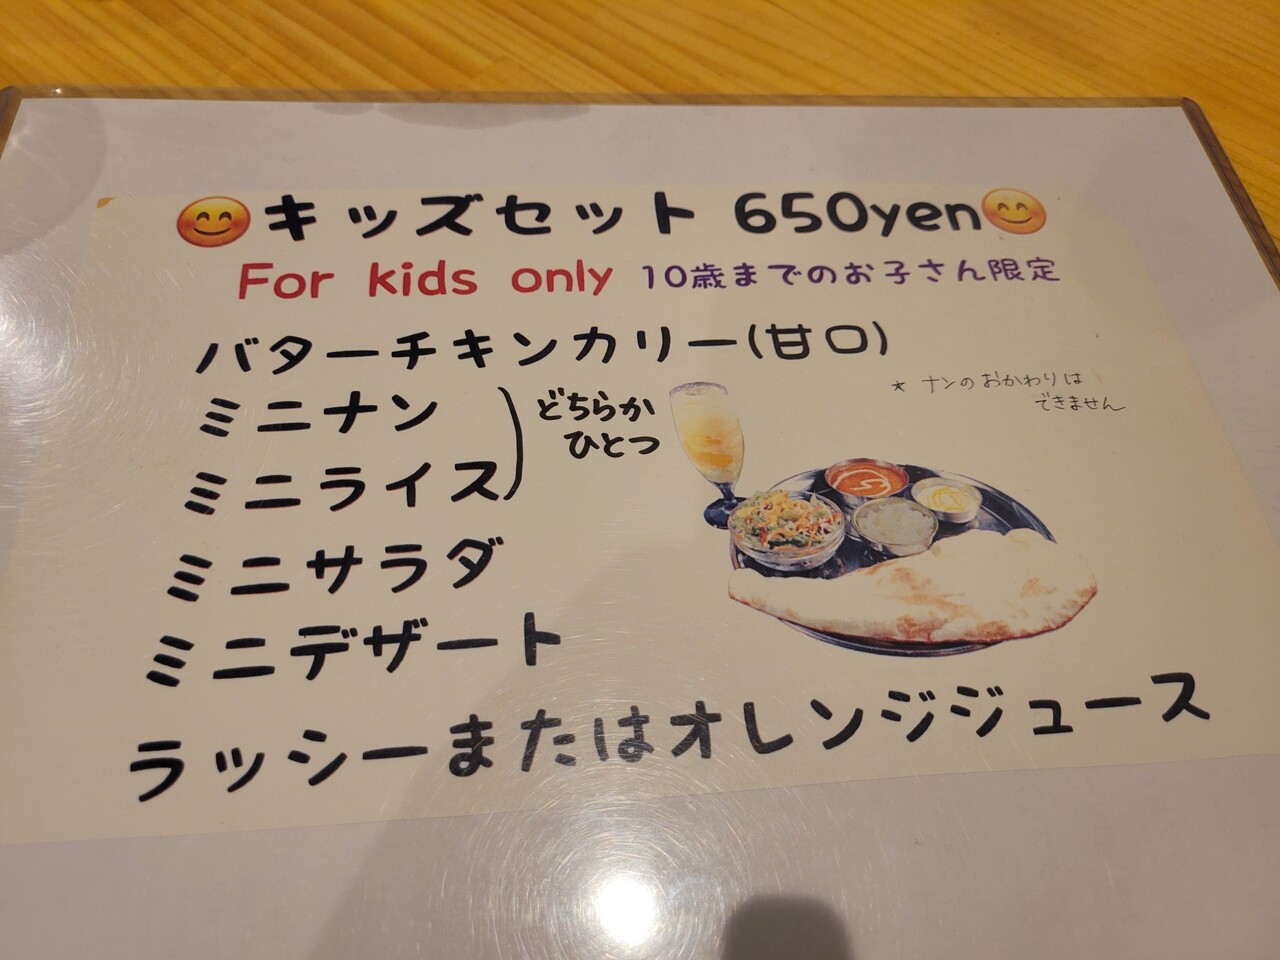 😊キッズセット 650yen😊
For kids only 10歳までのお子さん限定
バターチキンカリー(甘口)
★ ナンのおかわりは
できません
ミニナン
ミニライス
どちらか
ひとつ
ミニサラダ
ミニデザート
ラッシーまたはオレンジジュース